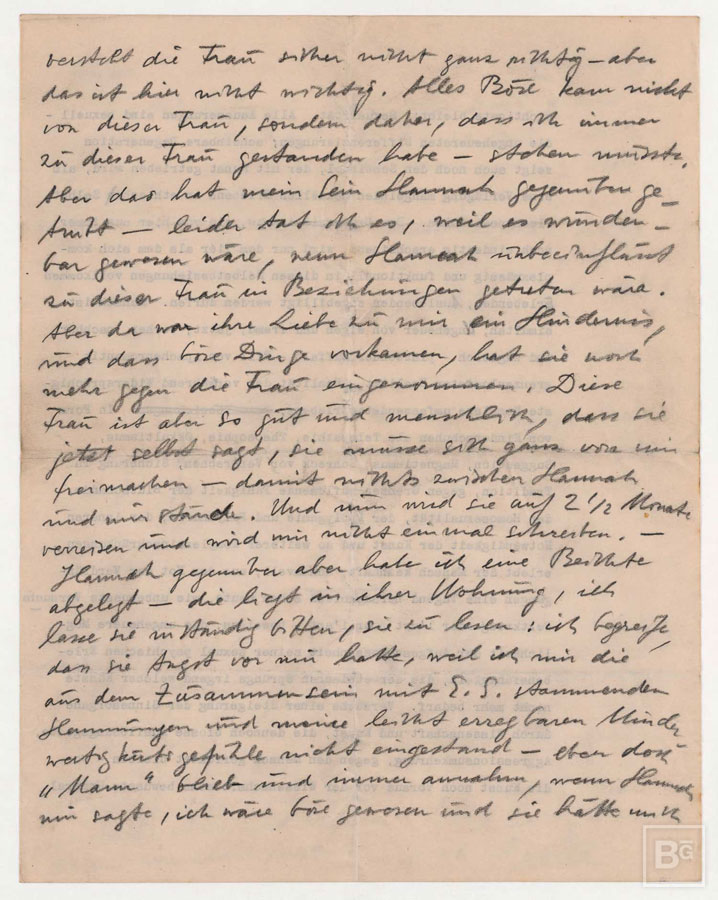 versteht die Frau sicher nicht ganz richtig – aber
das ist hier nicht wichtig. Alles Böse kam nicht
von dieser Frau, sondern daher, dass ich immer
zu dieser Frau gestanden habe – stehen musste.
Aber das hat mein Sein Hannah gegenüber ge-
trübt – leider tat ich es, weil es wunder-
bar gewesen wäre, wenn Hannah unbeeinflusst
zu dieser Frau in Beziehungen getreten wäre.
Aber da war ihre Liebe zu mir ein Hindernis,
und dass böse Dinge vorkamen, hat sie noch
mehr gegen die Frau eingenommen. Diese
Frau ist aber so gut und menschlich, dass sie
jetzt selbst sagt, sie müsse sich ganz von mir
freimachen – damit nichts zwischen Hannah
und mir stände. Und nun wird sie auf 2 1/2 Monate
verreisen und wird mir nicht einmal schreiben. –
Hannah gegenüber aber habe ich eine Beichte
abgelegt – die liegt in ihrer Wohnung, ich
lasse sie inständig bitten, sie zu lesen: ich begreife,
dass sie Angst vor mir hatte, weil ich mir die
aus dem Zusammensein mit E. S. stammenden
Hemmungen und meine leicht erregbaren Minder
wertigkeitsgefühle nicht eingestand – eben doch
"Mann" blieb und immer annahm, wenn Hannah
mir sagte, ich wäre böse gewesen und sie hätte mich
BG